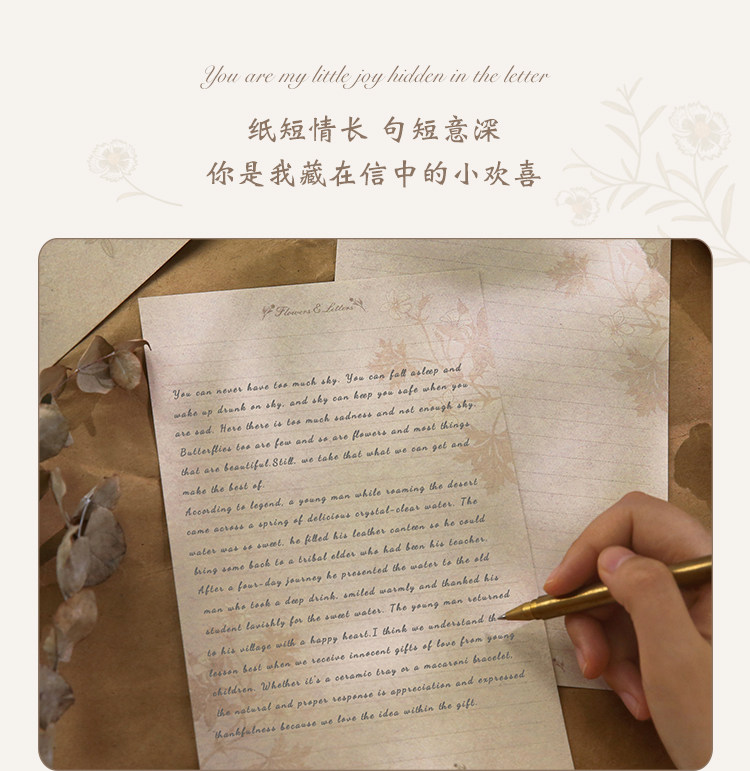 You are my little joy hidden in the letter
纸短情长 句短意深
你是我藏在信中的小欢喜
Flowers & Letters
You can never have too much sky. You can fall asleep and
wake up drunk on sky, and sky can keep you safe when you
are sad. Here there is too much sadness and not enough sky.
Butterflies too are few and so are flowers and most things
that are beautiful.Still, we take that what we can get and
make the best of.
According to legend, a young man while roaming the desert
came across a spring of delicious crystal-clear water. The
water was so sweet, he filled his leather canteen so he could
bring some back to a tribal elder who had been his teacher.
After a four-day journey he presented the water to the old
man who took a deep drink, smiled warmly and thanked his
student lavishly for the sweet water. The young man returned
to his village with a happy heart.I think we understand the
lesson best when we receive innocent gifts of love from young
children. Whether it's a ceramic tray or a macaroni bracelet,
the natural and proper response is appreciation and expressed
thankfulness because we love the idea within the gift.